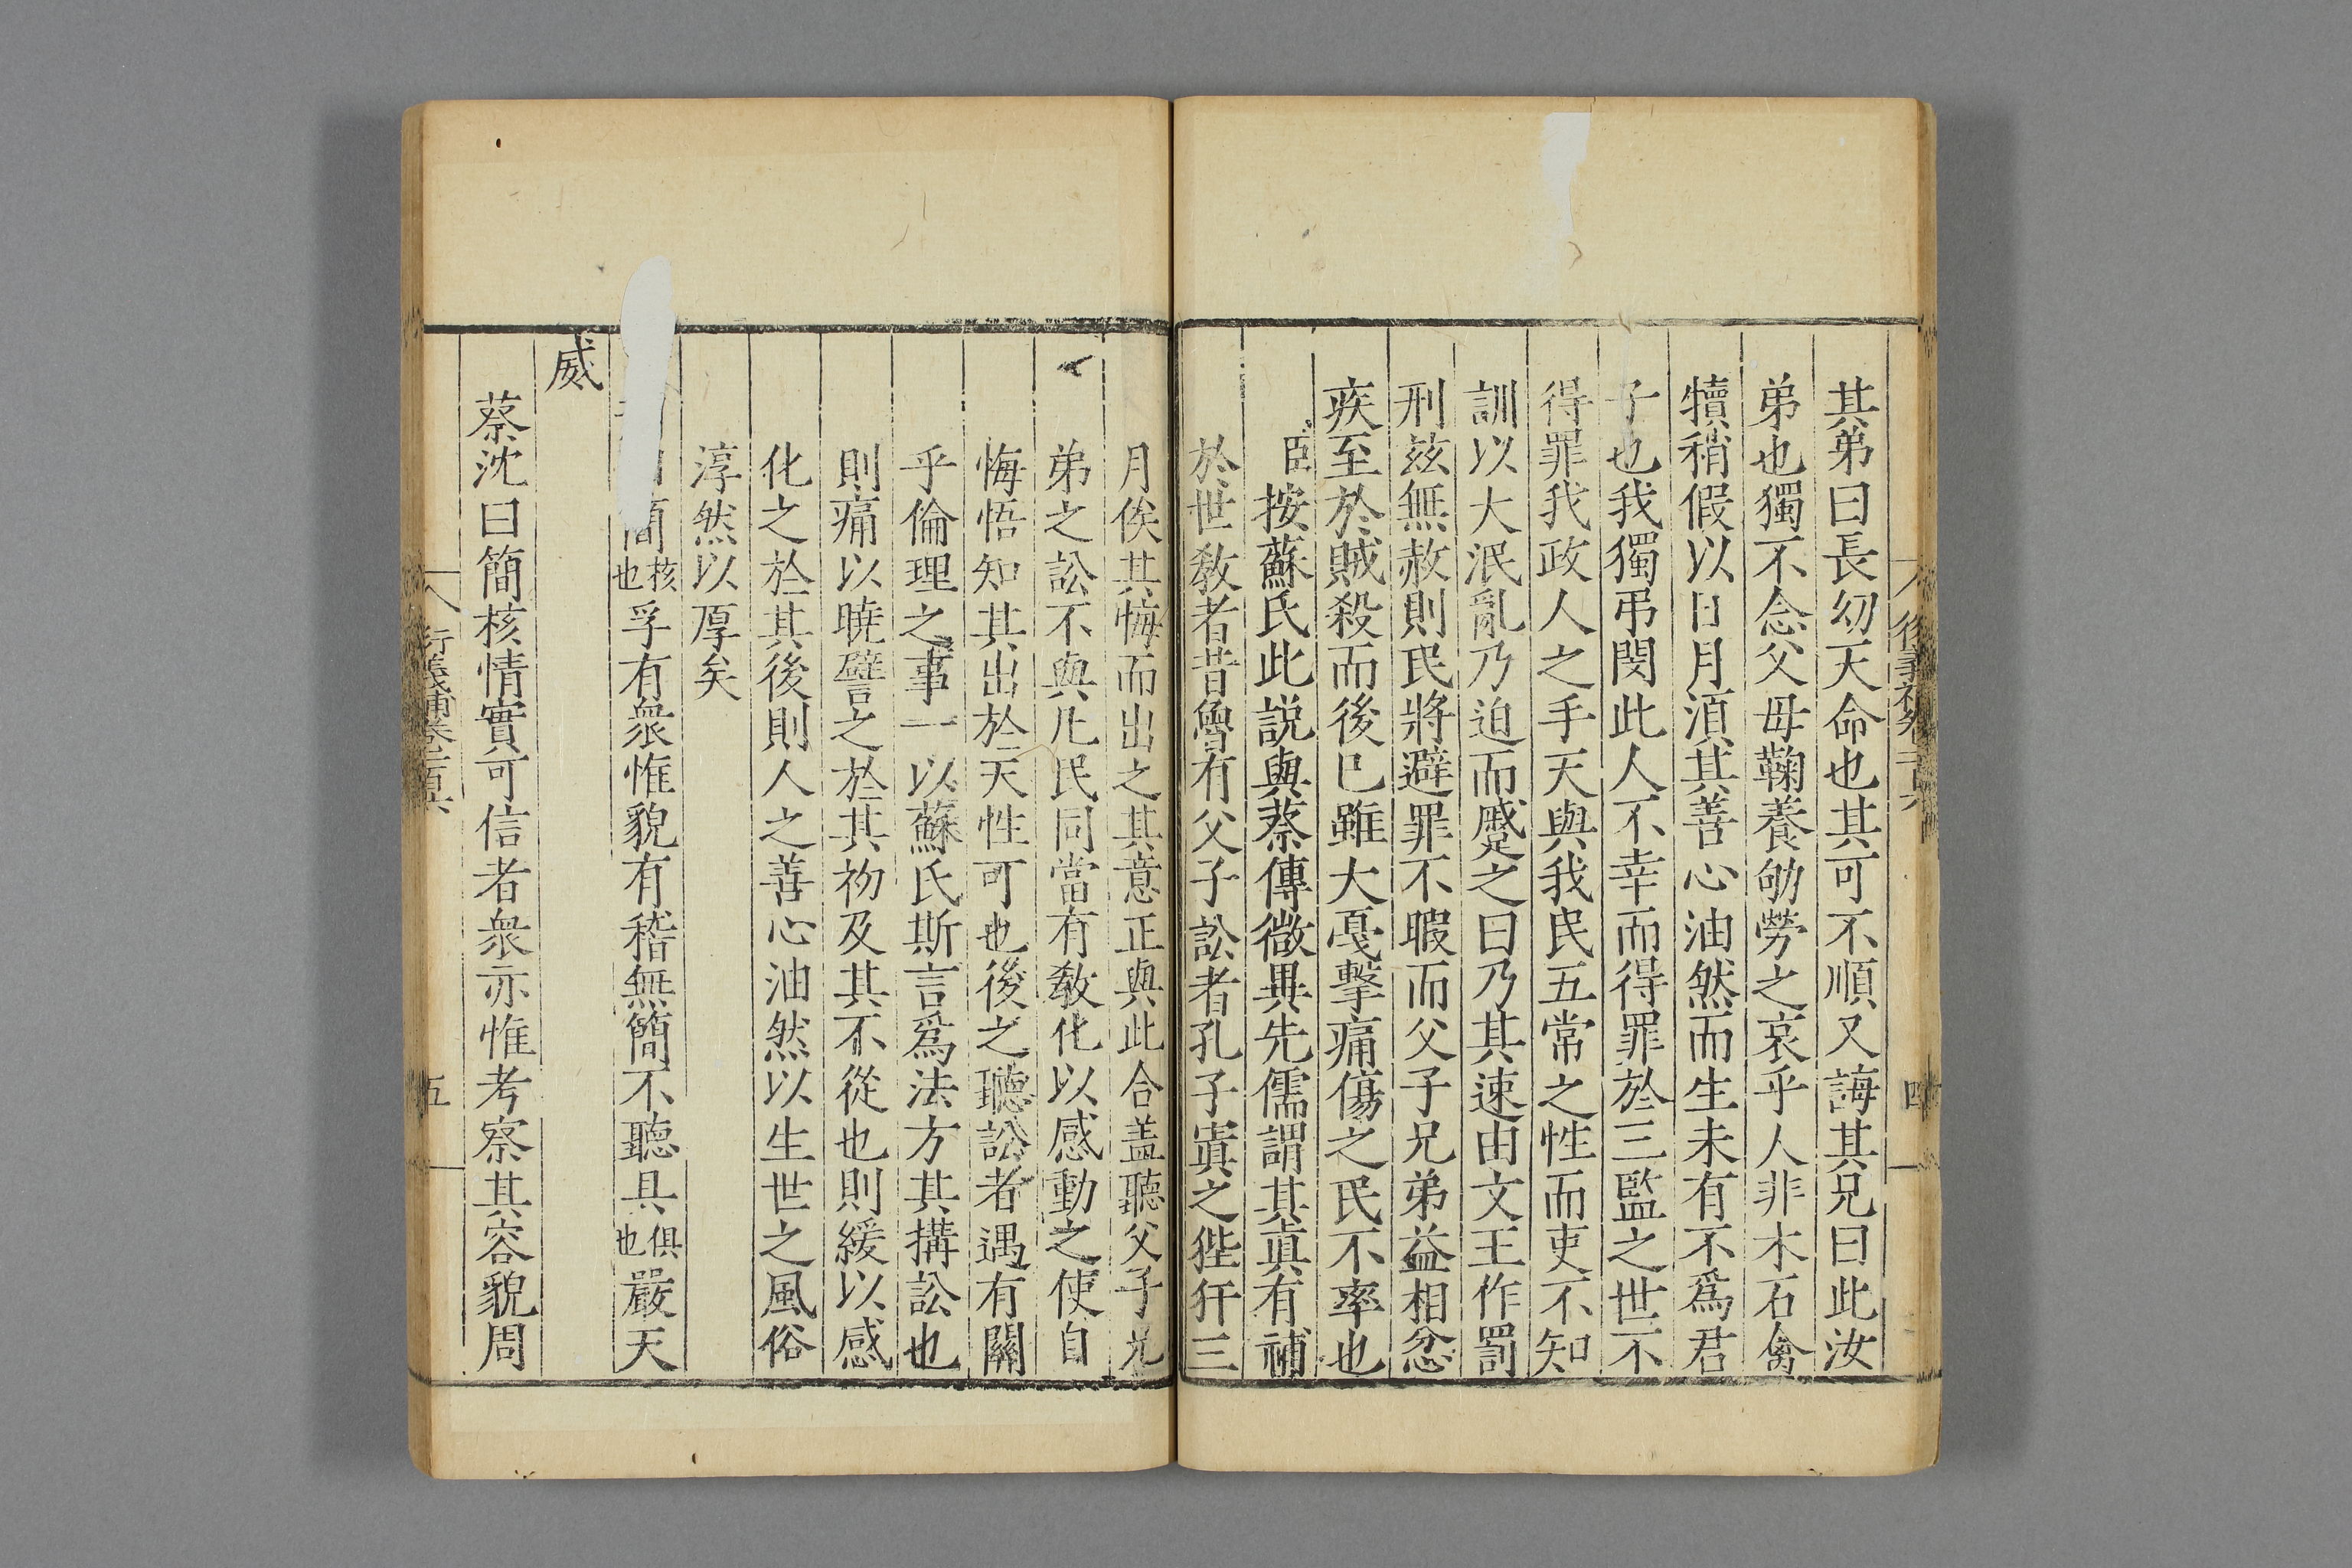 其弟曰長幼天命也其可不順又誨其兄曰此汝
弟也獨不念父母鞠養劬勞之哀乎人非木石禽
犢稍假以日月湏其善心油然而生未有不爲君
子也我獨弔閔此人不幸而得罪於三監之世不
得罪我政人之手天與我民五常之性而吏不知
訓以大泯亂乃迫而蹙之曰乃其速由文王作罰
刑兹無赦則民將避罪不暇而父子兄弟益相忿
疾至於賊殺而後已雖大戞擊痛傷之民不率也
臣按蘇氏此説與蔡傳微異先儒謂其眞有補
於世敎者昔魯有父子訟者孔子寘之狴犴三
四
月俟其悔而出之其意正與此合盖聽父子兄
弟之訟不與凡民同當有敎化以感動之使自
悔悟知其出於天性可也後之聽訟者遇有關
乎倫理之事一以蘇氏斯言爲法方其搆訟也
則痛以曉譬之於其初及其不從也則緩以感
化之於其後則人之善心油然以生世之風俗
淳然以厚矣
簡核也孚有衆惟貌有稽無簡不聽具俱也嚴天
威
蔡沈曰簡核情實可信者衆亦惟考察其容貌周
衍義補卷一百六
五